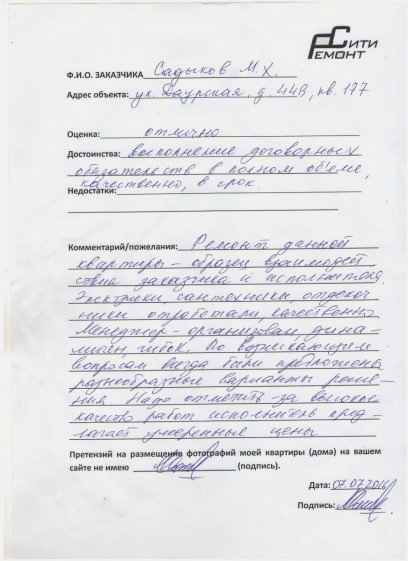 СИТИ
РЕМОНТ
Ф.И.О. ЗАКАЗЧИКА Садыков М.Х.
Адрес объекта: ул. Даурская, д. 44В, кв. 177
Оценка: отлично
Достоинства: выполнение договорных
обязательств в полном объёме,
качественно, в срок
Недостатки:
Комментарий/пожелания: Ремонт данной
квартиры - образец взаимодей
ствия заказчика и исполнителя.
Электрики, сантехники, отделоч-
ники отработали качественно
Менеджер - организован, дина-
мичен, гибок. По возникающим
вопросам всегда были предложены
разнообразные варианты реше-
ния. Надо отметить - за высокое
качество работ исполнитель пред-
лагает умеренные цены
Претензий на размещение фотографий моей квартиры (дома) на вашем
сайте не имею (подпись).
Дата: 07.07.2016
Подпись: